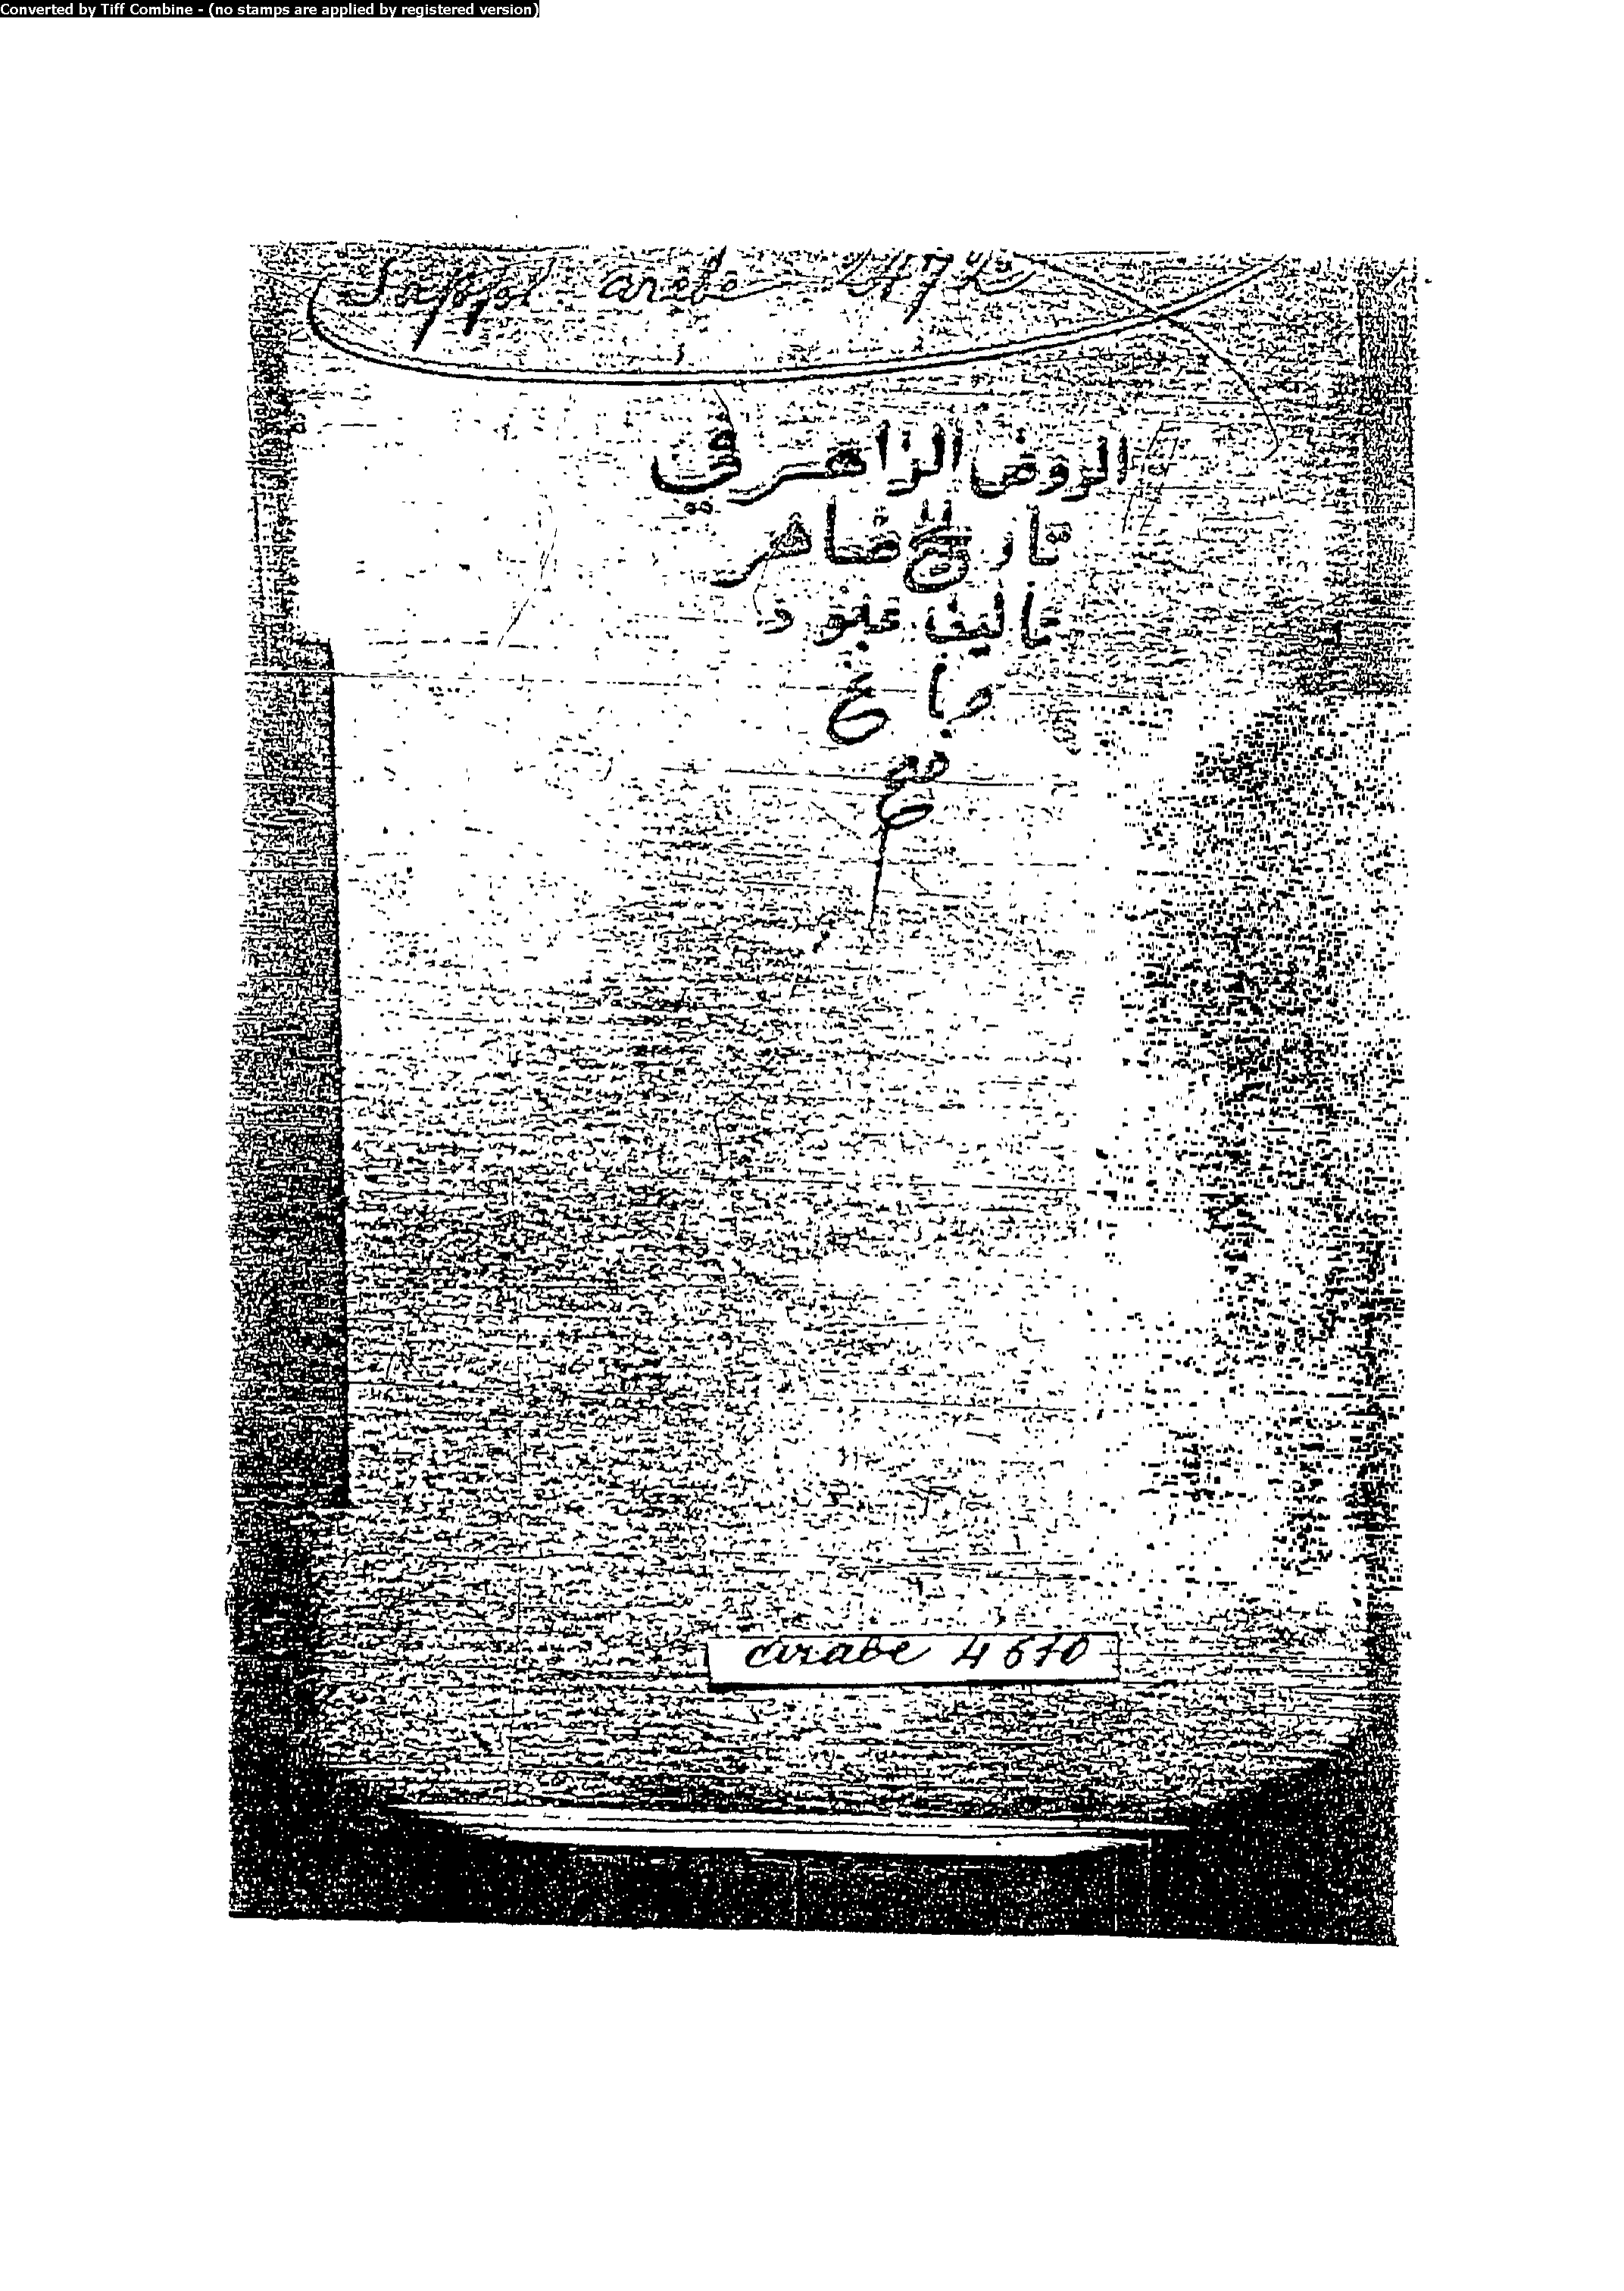 Converted by Tiff Combine - (no stamps are applied by registered version)
Suppl. arabe
الروض الزاهر في
تاريخ ضاهر
تاليف عبود
صباغ
arabe 4610